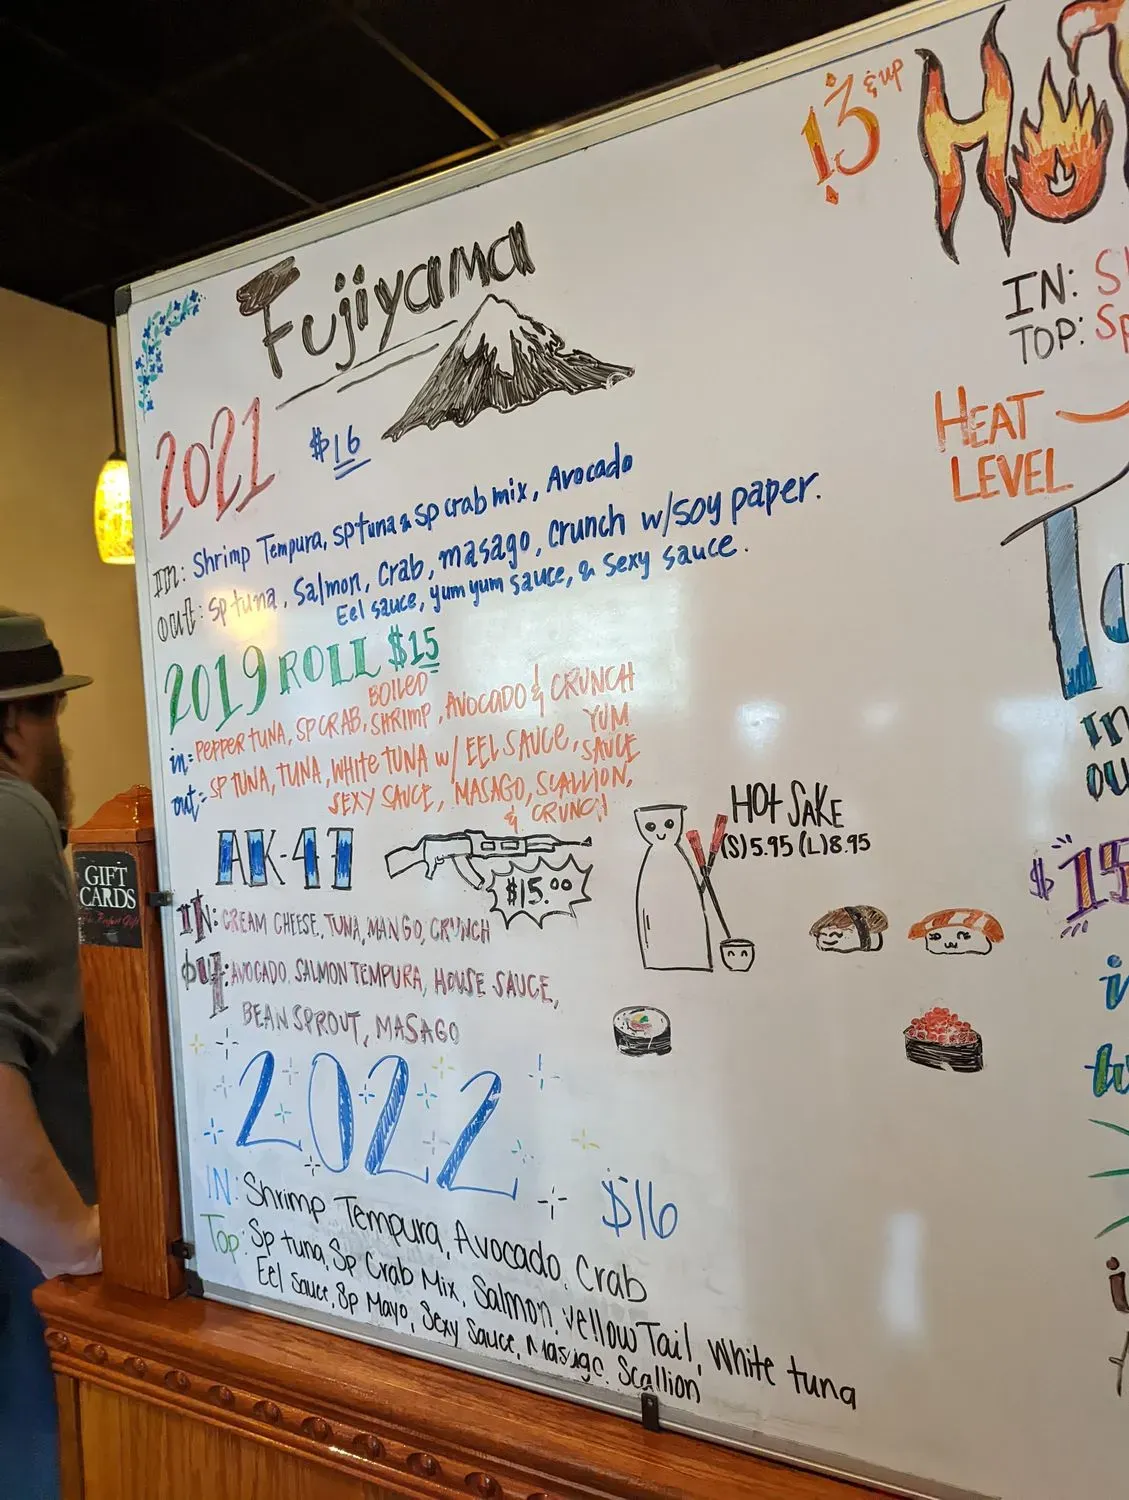 Fujiyama
2021 $16
In: Shrimp Tempura, sp tuna & sp crab mix, Avocado
out: sp tuna, Salmon, Crab, masago, Crunch w/soy paper.
Eel sauce, yum yum sauce, & sexy sauce.
2019 ROLL $15
BOILED
in: PEPPER TUNA, SP CRAB, SHRIMP, AVOCADO & CRUNCH
out: SP TUNA, TUNA, WHITE TUNA W/ EEL SAUCE, YUM SAUCE
SEXY SAUCE, MASAGO, SCALLION,
& CRUNCH
AK-47
$15.00
IN: CREAM CHEESE, TUNA, MANGO, CRUNCH
OUT: AVOCADO, SALMON TEMPURA, HOUSE SAUCE,
BEAN SPROUT, MASAGO
2022
$16
IN: Shrimp Tempura, Avocado, Crab
Top: Sp tuna, Sp Crab Mix, Salmon, Yellow Tail, White tuna
Eel Sauce, Sp Mayo, Sexy Sauce, Masago, Scallion
HOT SAKE
(S) 5.95 (L) 8.95
13 & up
IN:
TOP: Sp
HEAT
LEVEL
in
ou
$15
GIFT
CARDS